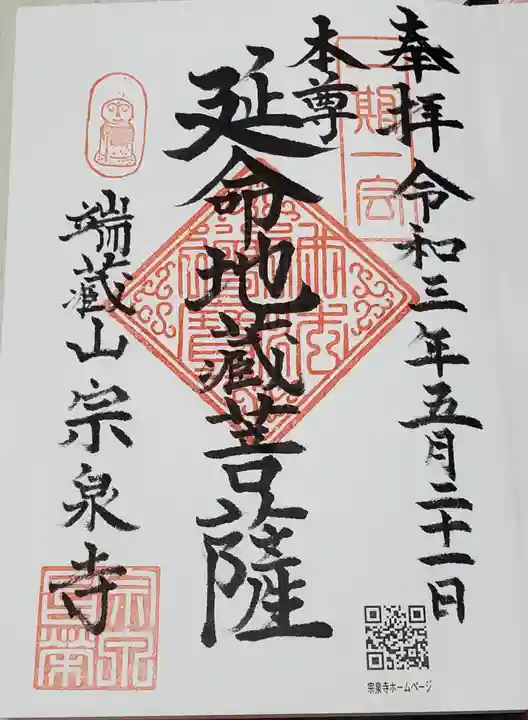 奉拝 令和三年五月二十一日
一期一会
本尊
延命地蔵菩薩
端蔵山宗泉寺
宗泉寺ホームページ